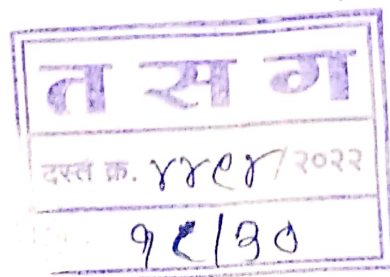 त स ग
दस्त क्र. ४४९४/२०२२
१९/३०